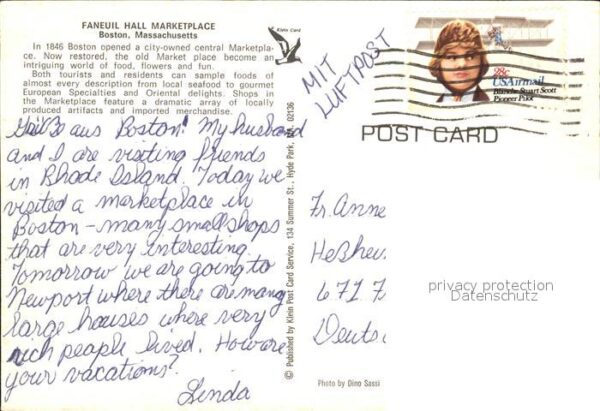 FANEUIL HALL MARKETPLACE
Boston, Massachusetts
In 1846 Boston opened a city-owned central Marketpla-
ce. Now restored, the old Market place become an
intriguing world of food, flowers and fun.
Both tourists and residents can sample foods of
almost every description from local seafood to gourmet
European Specialties and Oriental delights. Shops in
the Marketplace feature a dramatic array of locally
produced artifacts and imported merchandise.
Klein Card
aus Boston! My husband
and I are visiting friends
in Rhode Island. Today we
visited a marketplace in
Boston - many small shops
that are very interesting.
Tomorrow we are going to
Newport where there are many
large houses where very
rich people lived. How are
your vacations?
Linda
© Published by Klein Post Card Service, 134 Summer St., Hyde Park, MA 02136
MIT
LUFTPOST
28c
USAirmail
Blanche Stuart Scott
Pioneer Pilot
POST CARD
Fr. Anne
Heßhei
671 F
Deuts
privacy protection
Datenschutz
Photo by Dino Sassi